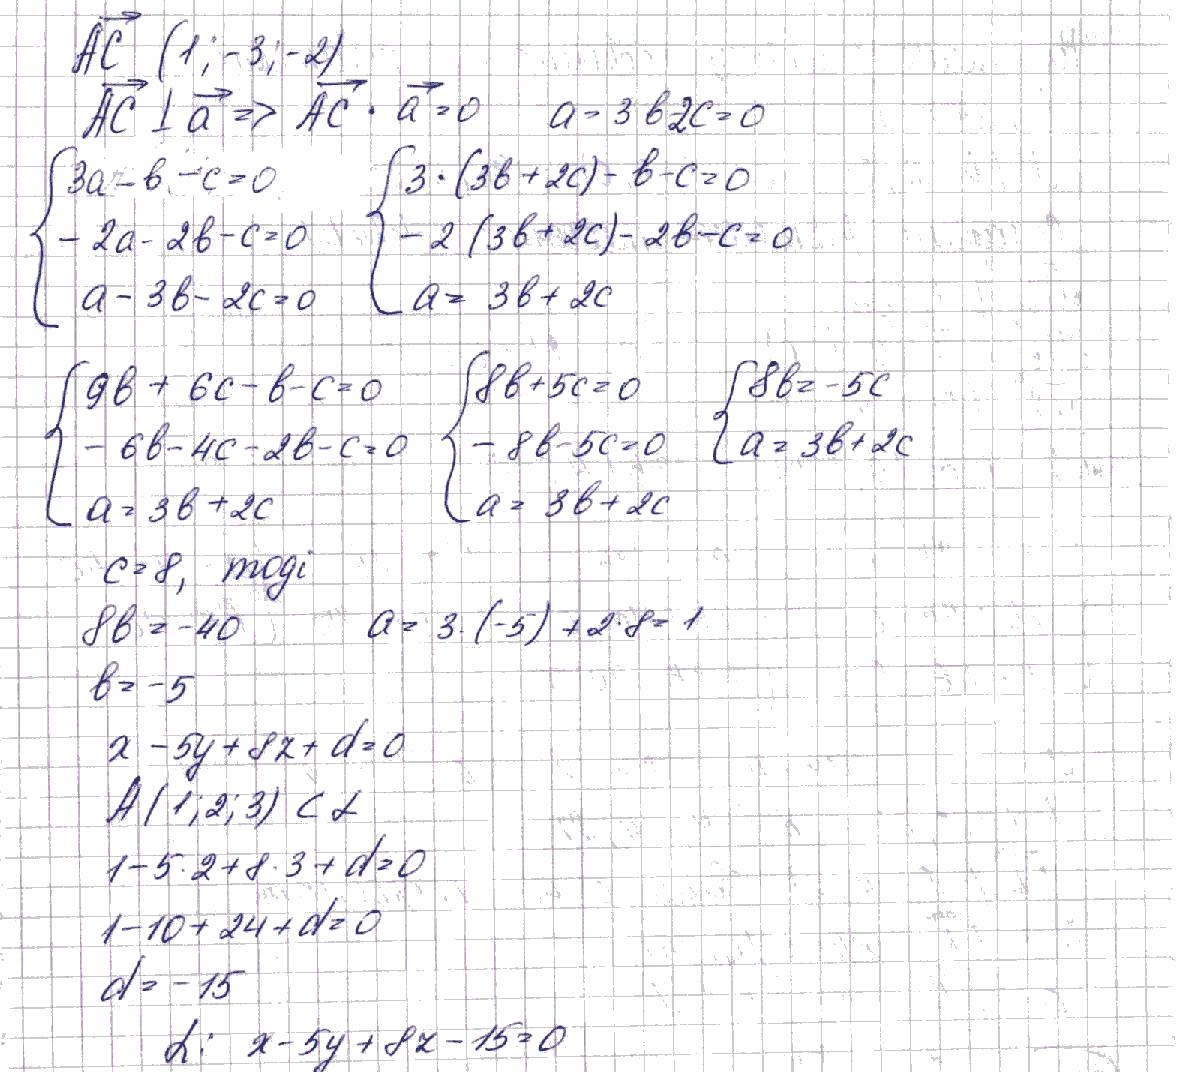 AC (1; -3; -2)
AC ⊥ a => AC · a = 0 a = 3b2c = 0
3a - b - c = 0 3·(3b + 2c) - b - c = 0
- 2a - 2b - c = 0 - 2 (3b + 2c) - 2b - c = 0
a - 3b - 2c = 0 a = 3b + 2c
9b + 6c - b - c = 0 8b + 5c = 0 8b = -5c
- 6b - 4c - 2b - c = 0 - 8b - 5c = 0 a = 3b + 2c
a = 3b + 2c a = 3b + 2c
c = 8, тоді
8b = -40 a = 3·(-5) + 2·8 = 1
b = -5
x - 5y + 8z + d = 0
A (1; 2; 3) ⊂ α
1 - 5·2 + 8·3 + d = 0
1 - 10 + 24 + d = 0
d = -15
α: x - 5y + 8z - 15 = 0